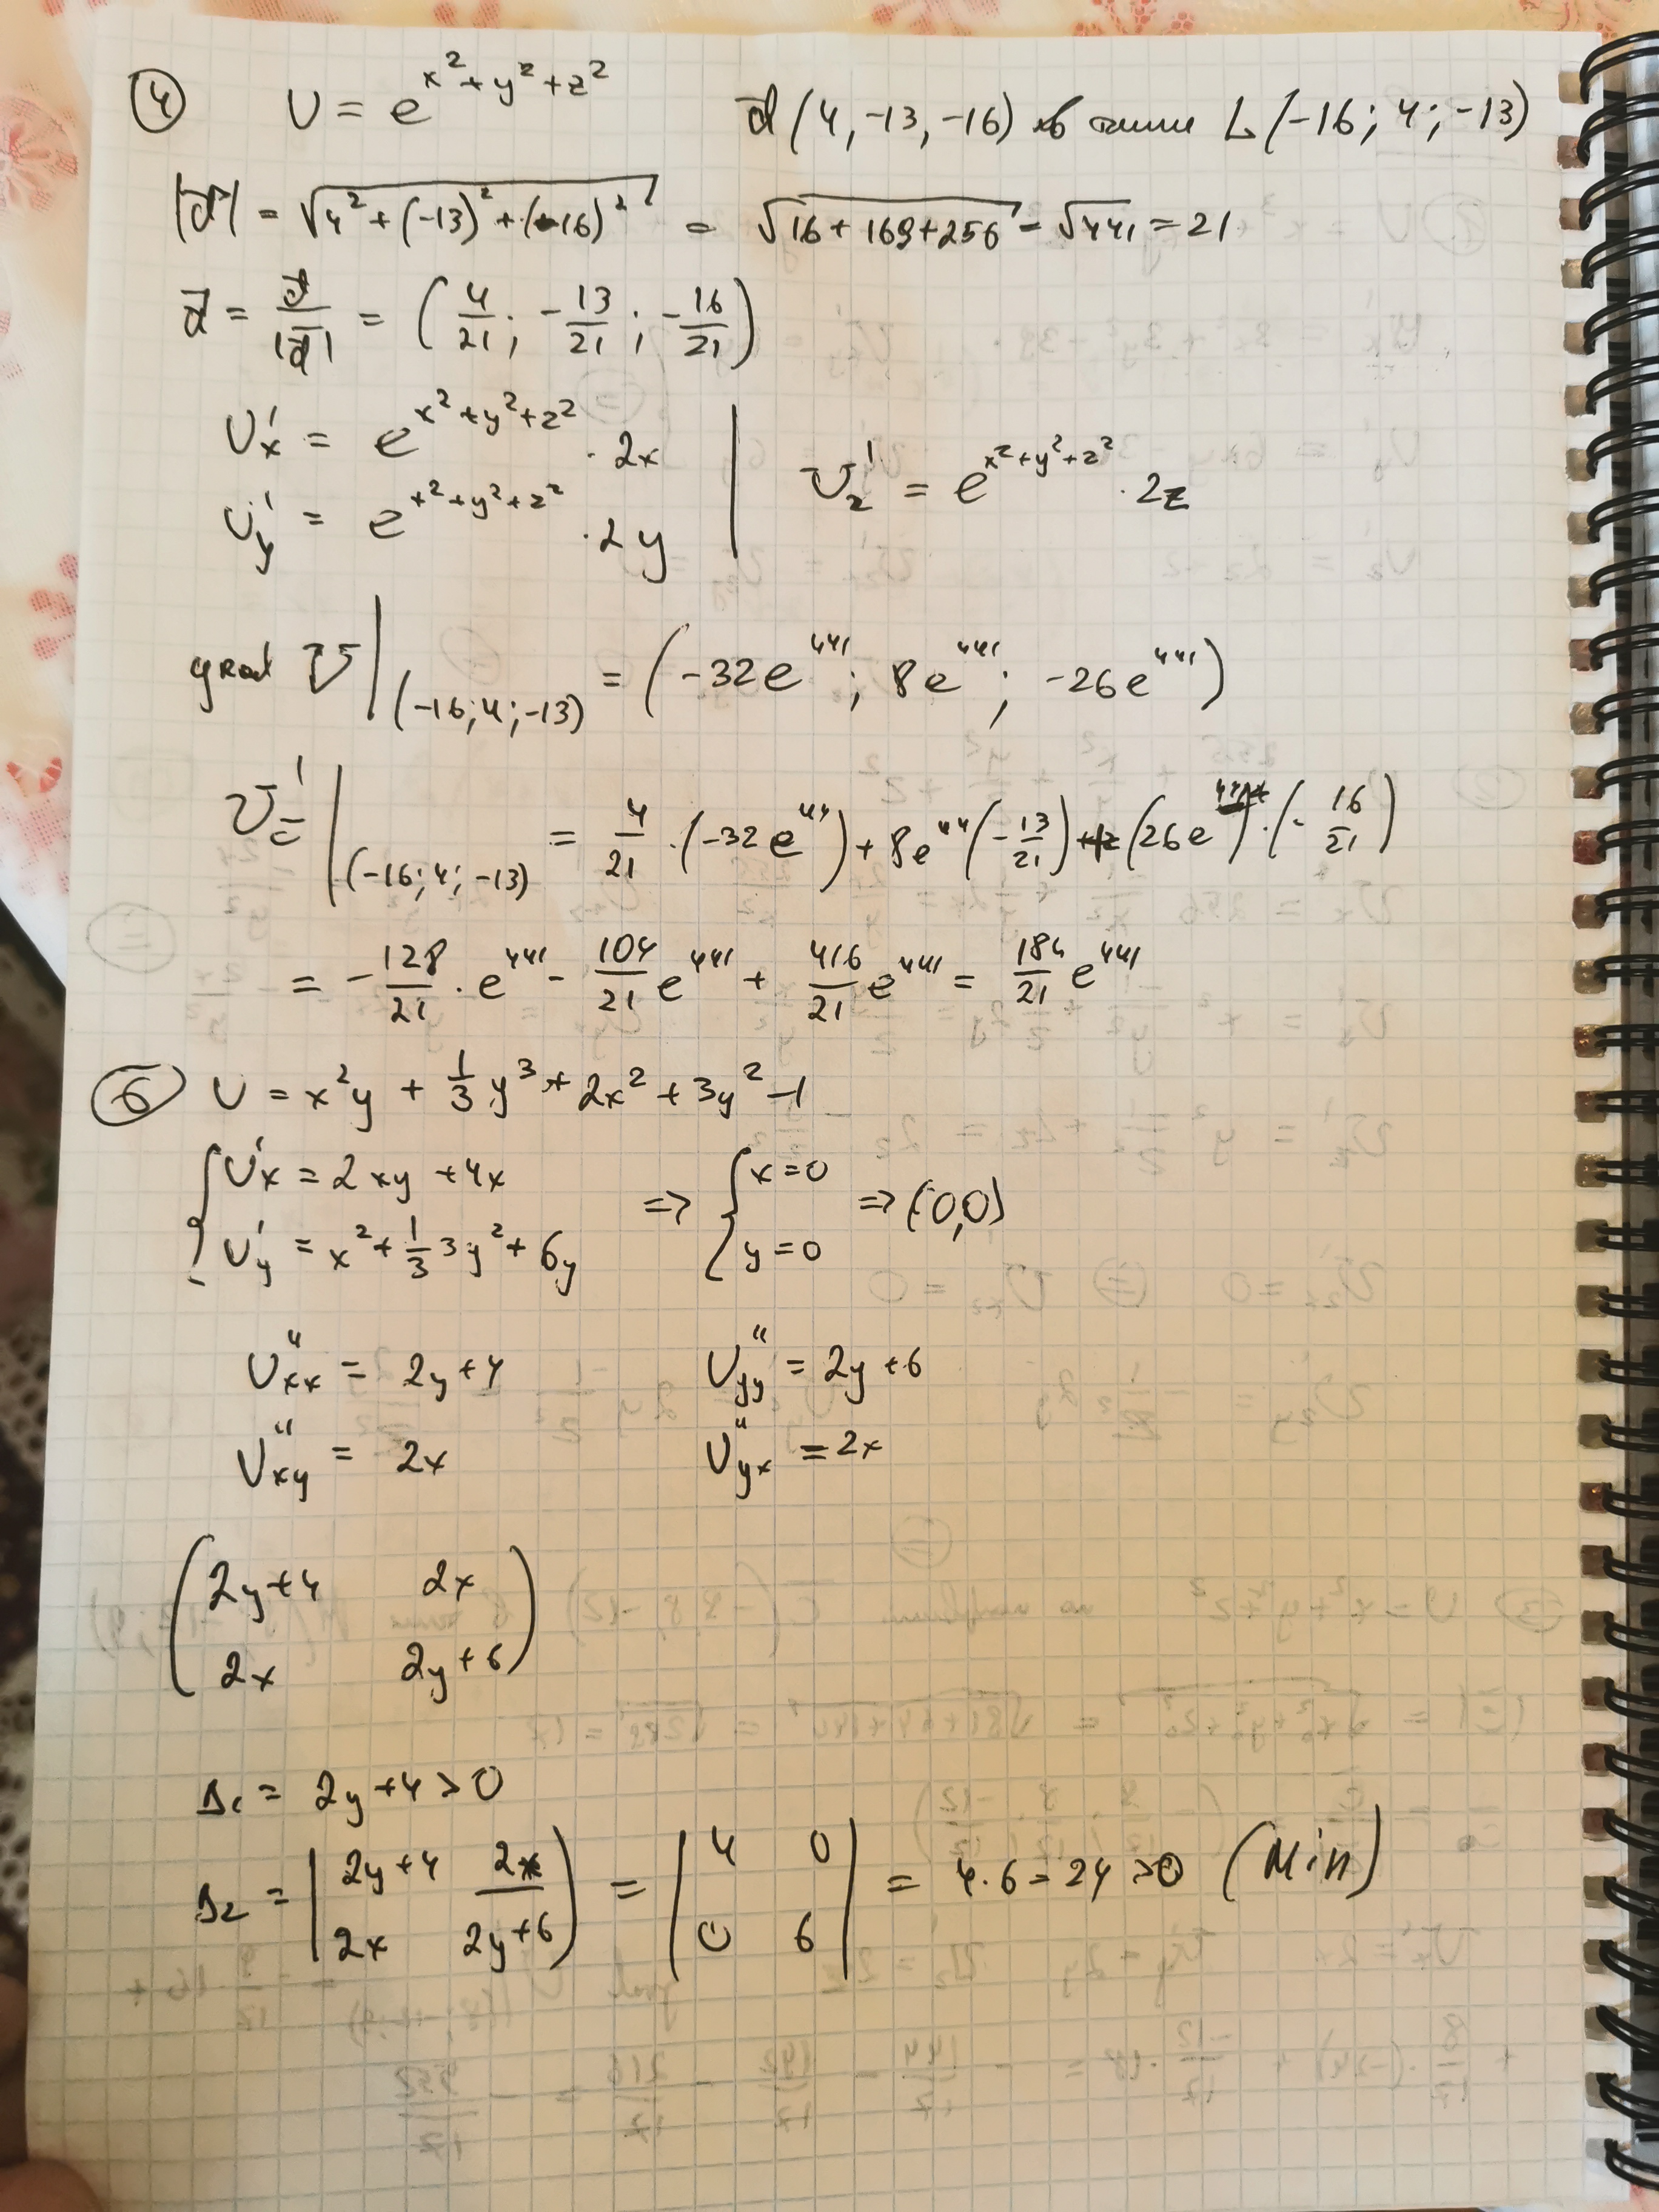 ④ U = e^{x²+y²+z²} d⃗ (4, -13, -16) в точке L (-16; 4; -13)
|d⃗| = √(4² + (-13)² + (-16)²) = √(16+169+256) = √441 = 21
d⃗ = d⃗/|d⃗| = (4/21; -13/21; -16/21)
U'x = e^{x²+y²+z²} · 2x
U'y = e^{x²+y²+z²} · 2y
U'z = e^{x²+y²+z²} · 2z
grad U |(-16; 4; -13) = (-32e^{441}; 8e^{441}; -26e^{441})
U' |(-16; 4; -13) = 4/21 · (-32e^{44}) + 8e^{44} (-13/21) + (26e) · (-16/21)
= -128/21 · e^{441} - 104/21 e^{441} + 416/21 e^{441} = 184/21 e^{441}
⑥ U = x²y + 1/3 y³ + 2x² + 3y² - 1
{ U'x = 2xy + 4x => { x = 0 => (0,0)
U'y = x² + 1/3 3y² + 6y y = 0
U''xx = 2y + 4 U''yy = 2y + 6
U''xy = 2x U''yx = 2x
( 2y+4 2x
2x 2y+6 )
Δ₁ = 2y + 4 > 0
Δ₂ = | 2y+4 2x | = | 4 0 | = 4·6 = 24 > 0 (Min)
2x 2y+6 0 6